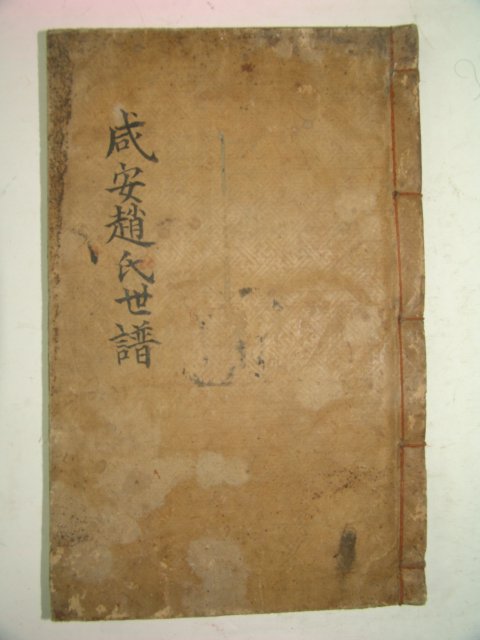 咸安趙氏世譜